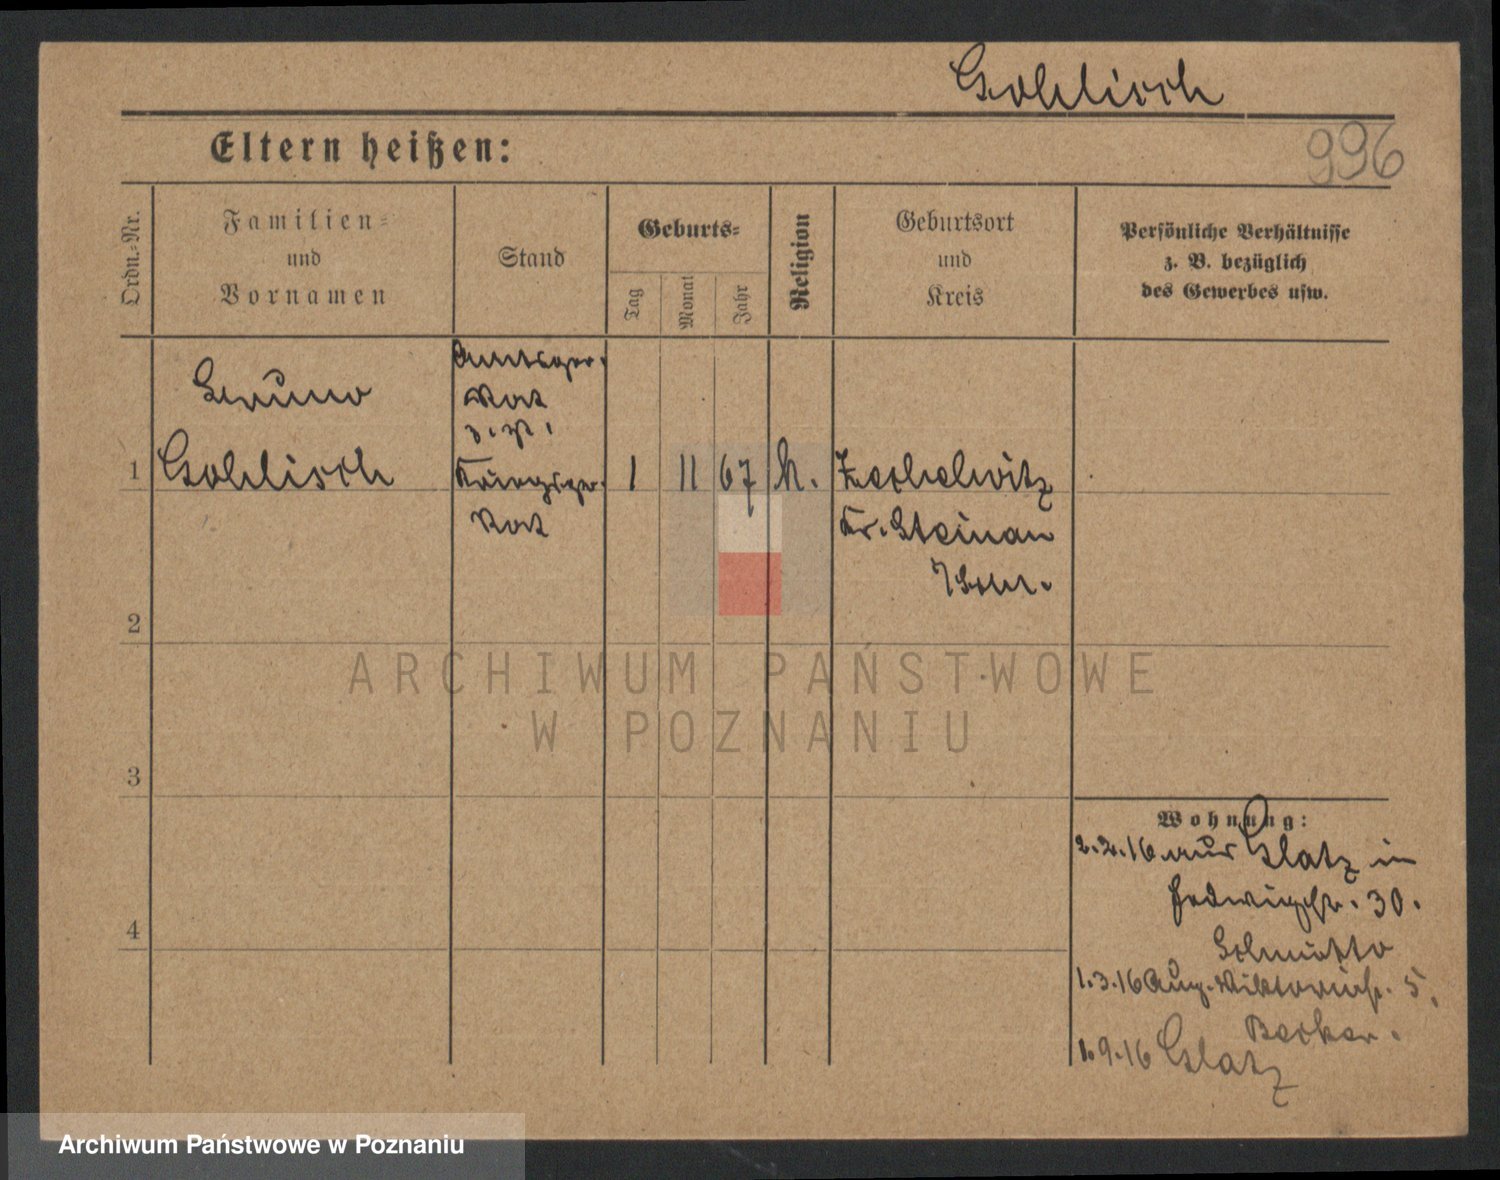 Gohlisch
996
Eltern heißen:
Ordn.-Nr.
Familien-
und
Vornamen
Stand
Geburts-
Tag
Monat
Jahr
Religion
Geburtsort
und
Kreis
Persönliche Verhältnisse
z. B. bezüglich
des Gewerbes usw.
1
Bruno
Gohlisch
Amtsger.
Rat
z. Zt.
Kriegsger.
Rat
1
11
67
k.
Zechelwitz
Kr. Steinau
/Schl.
2
3
4
Wohnung:
2.2.16 aus Glatz in
Hedwigstr. 30.
1.3.16 Aug. Viktoriastr. 5.
Becker.
1.9.16 Glatz
ARCHIWUM PAŃSTWOWE
W POZNANIU
Archiwum Państwowe w Poznaniu